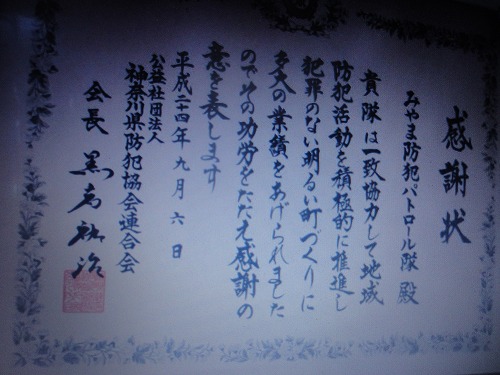 感謝状
みやま防犯パトロール隊 殿
貴隊は一致協力して地域
防犯活動を積極的に推進し
犯罪のない明るい町づくりに
多大の業績をあげられました
のでその功労をたたえ感謝の
意を表します
平成二十四年九月六日
公益社団法人
神奈川県防犯協会連合会
会長